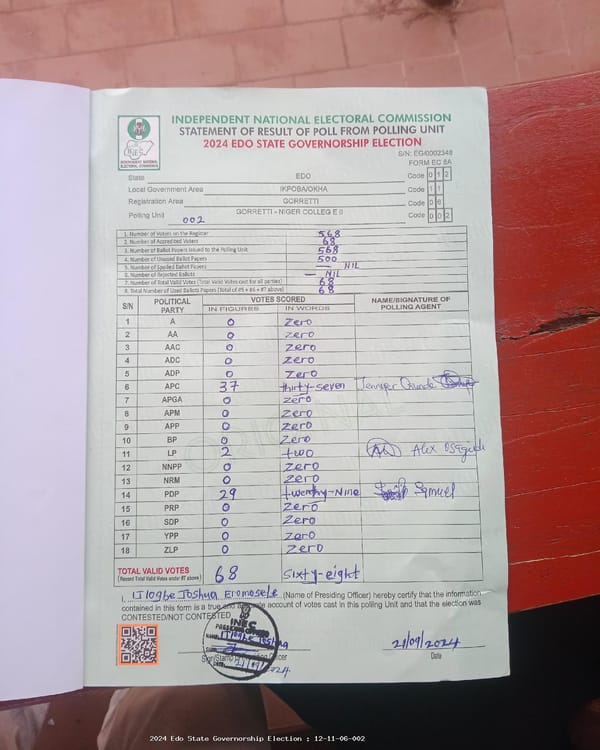 INDEPENDENT NATIONAL ELECTORAL COMMISSION
STATEMENT OF RESULT OF POLL FROM POLLING UNIT
2024 EDO STATE GOVERNORSHIP ELECTION
S/N: EG/0002348
FORM EC 8A
INEC
INDEPENDENT NATIONAL ELECTORAL COMMISSION
State EDO Code 0 1 2
Local Government Area IKPOBA/OKHA Code 1 1
Registration Area GORRETTI Code 0 6
Polling Unit 002 GORRETTI - NIGER COLLEG E II Code 0 0 2
1. Number of Voters on the Register 568
2. Number of Accredited Voters 68
3. Number of Ballot Papers Issued to the Polling Unit 568
4. Number of Unused Ballot Papers 500
5. Number of Spoiled Ballot Papers — NIL
6. Number of Rejected Ballots — NIL
7. Number of Total Valid Votes (Total Valid Votes cast for all parties) 68
8. Total Number of Used Ballots Papers (Total of #5 + #6 + #7 above) 68
S/N POLITICAL PARTY VOTES SCORED NAME/SIGNATURE OF POLLING AGENT
IN FIGURES IN WORDS
1 A 0 Zero
2 AA 0 Zero
3 AAC 0 Zero
4 ADC 0 Zero
5 ADP 0 Zero
6 APC 37 thirty-seven Jennifer
7 APGA 0 Zero
8 APM 0 Zero
9 APP 0 Zero
10 BP 0 Zero
11 LP 2 two Alex Osagiede
12 NNPP 0 Zero
13 NRM 0 Zero
14 PDP 29 twenty-Nine Samuel
15 PRP 0 Zero
16 SDP 0 Zero
17 YPP 0 Zero
18 ZLP 0 Zero
TOTAL VALID VOTES 68 sixty-eight
(Record Total Valid Votes under #7 above)
I, Joshua Eromosele (Name of Presiding Officer) hereby certify that the information
contained in this form is a true and account of votes cast in this polling Unit and that the election was
CONTESTED/NOT CONTESTED
INEC
Officer
21/09/2024
Date
2024 Edo State Governorship Election : 12-11-06-002